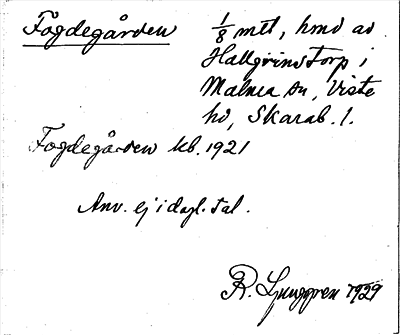 Fogdegården
1/8 mtl, hmd av
Hallgrimstorp i
Malma sn, Viste
hd, Skarab. l.
Fogdegården kb. 1921
Anv. ej i dagl. tal.
R. Ljunggren 1929